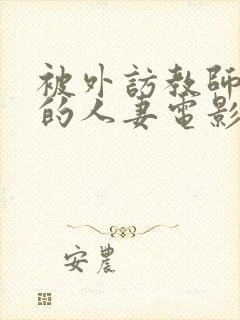 被外訪教師
的人妻電影
安農